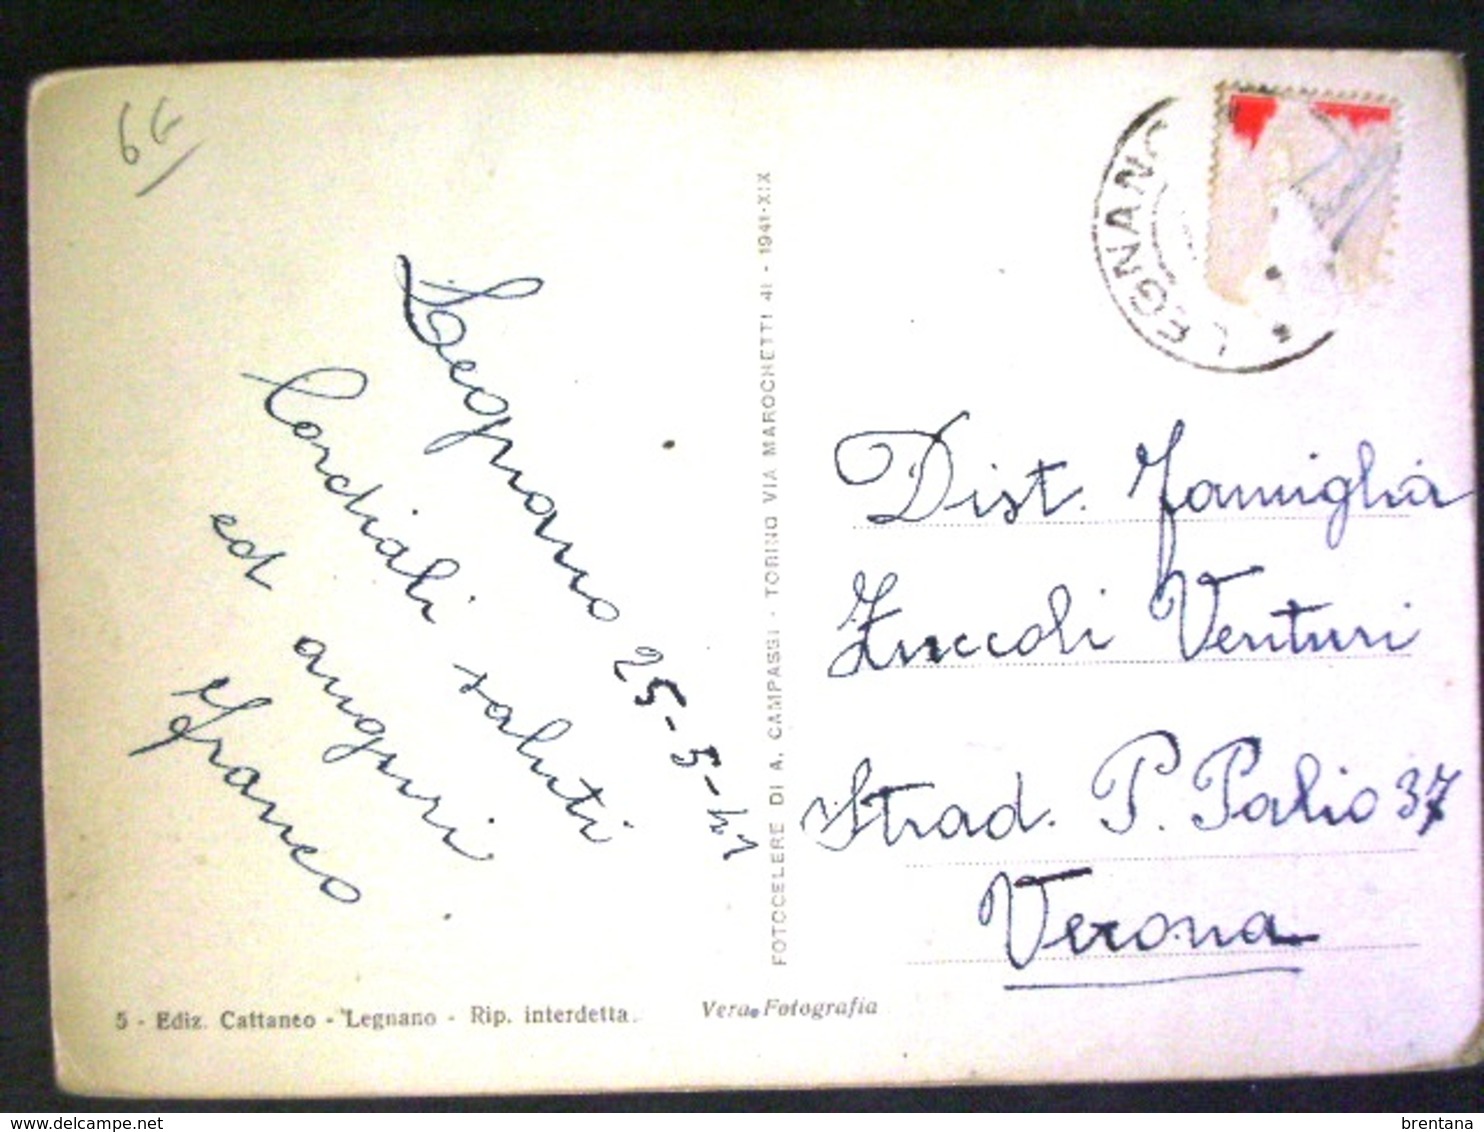 6G
LEGNANO
Legnano 25-5-41
Cordiali saluti
ed auguri
Franco
FOTOCELERE DI A. CAMPASSI - TORINO VIA MAROCHETTI 41 - 1941-XIX
Dist. Famiglia
Zuccoli Venturi
Strad. P. Palio 37
Verona
5 - Ediz. Cattaneo - Legnano - Rip. interdetta
Vera Fotografia
brentana